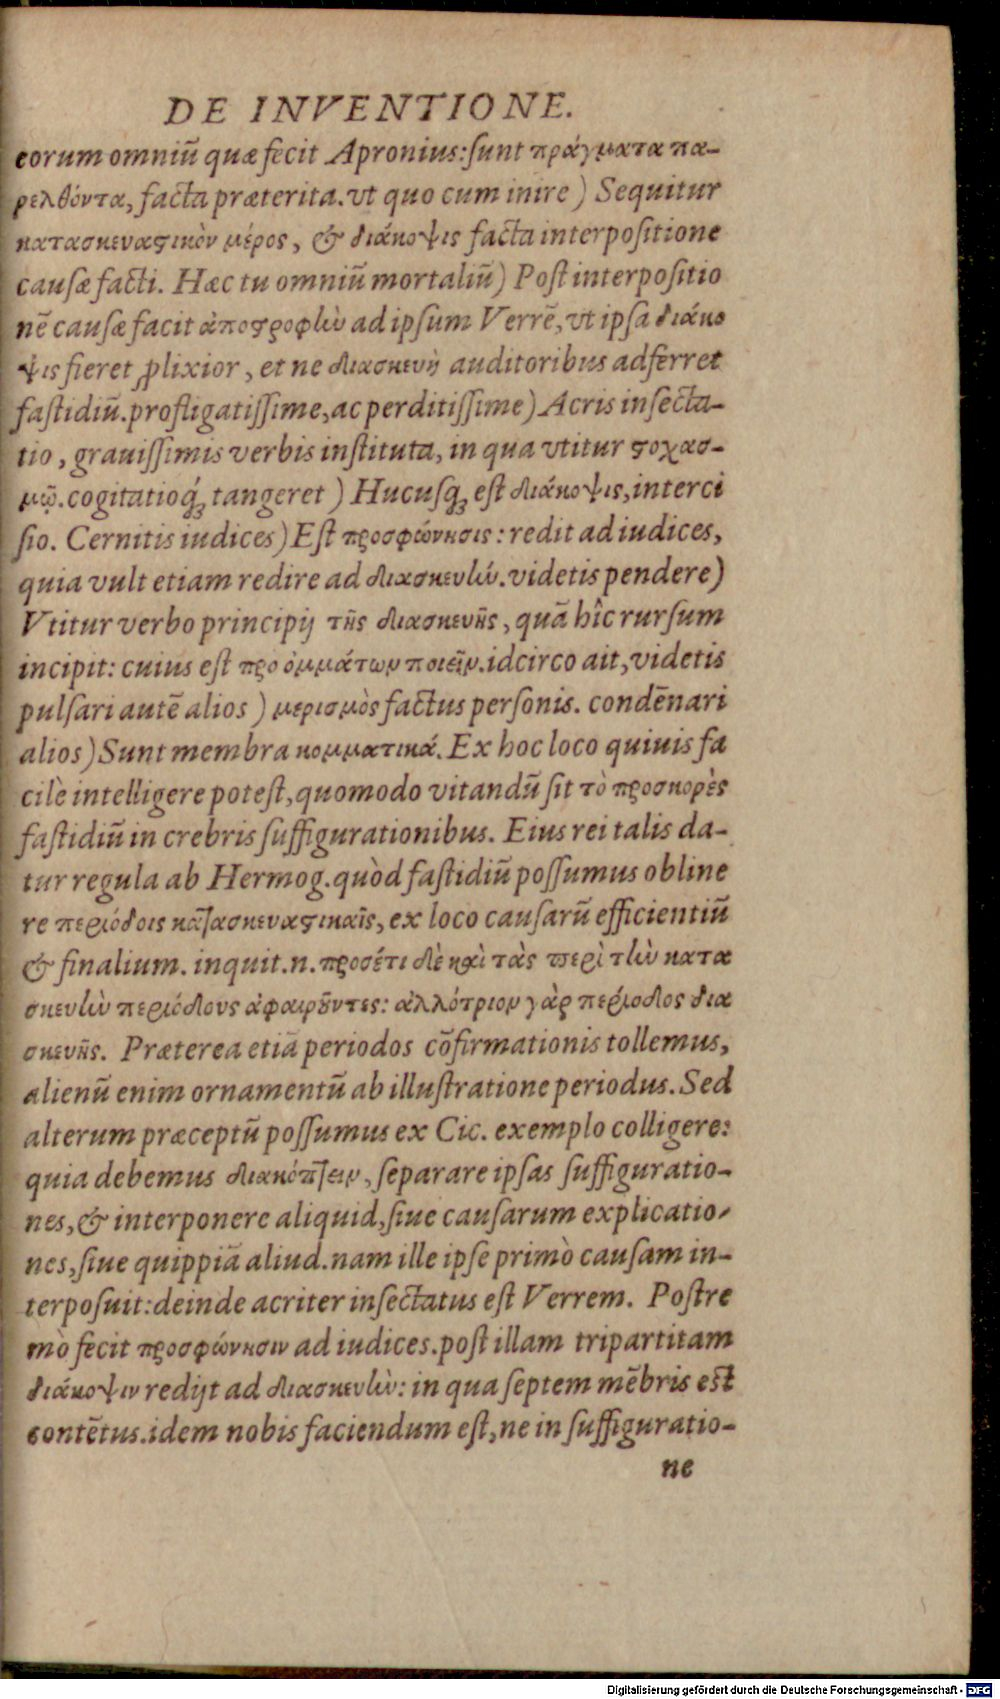 DE INVENTIONE.
eorum omniū quæ fecit Apronius: ſunt πράγματα πα-
ρελθόντα, facta præterita. vt quo cum inire) Sequitur
κατασκευαστικὸν μέρος, & διάκοψις facta interpoſitione
cauſæ facti. Hæc tu omniū mortaliū) Poſt interpoſitio
nē cauſæ facit ἀποστροφὴν ad ipſum Verrē, vt ipſa διάκο
ψις fieret ꝓlixior, et ne διασκευὴ auditoribus adferret
faſtidiū. profligatiſſime, ac perditiſſime) Acris inſecta-
tio, grauiſſimis verbis inſtituta, in qua vtitur στοχασ-
μῷ. cogitatioq́ꝫ tangeret) Hucuſqꝫ eſt διάκοψις, interci
ſio. Cernitis iudices) Eſt προσφώνησις: redit ad iudices,
quia vult etiam redire ad διασκευήν. videtis pendere)
Vtitur verbo principij τῆς διασκευῆς, quā hîc rurſum
incipit: cuius eſt προ ὀμμάτων ποιεῖν. idcirco ait, videtis
pulſari autē alios) μερισμὸς factus perſonis. condēnari
alios) Sunt membra κομματικά. Ex hoc loco quiuis fa
cilè intelligere poteſt, quomodo vitandū ſit τὸ προσκορὲς
faſtidiū in crebris ſuffigurationibus. Eius rei talis da-
tur regula ab Hermog. quòd faſtidiū poſſumus obline
re περιόδοις κατασκευαστικαῖς, ex loco cauſarū efficientiū
& finalium. inquit. n. προσέτι δὲ καὶ τὰς περὶ τὴν κατα
σκευὴν περιόδους ἀφαιροῦντες: ἀλλότριον γὰρ περίοδος δια
σκευῆς. Præterea etiā periodos cōfirmationis tollemus,
alienū enim ornamentū ab illuſtratione periodus. Sed
alterum præceptū poſſumus ex Cic. exemplo colligere:
quia debemus διακόπτειν, ſeparare ipſas ſuffiguratio-
nes, & interponere aliquid, ſiue cauſarum explicatio-
nes, ſiue quippiā aliud. nam ille ipſe primò cauſam in-
terpoſuit: deinde acriter inſectatus eſt Verrem. Poſtre
mò fecit προσφώνησιν ad iudices. poſt illam tripartitam
διάκοψιν redijt ad διασκευὴν: in qua ſeptem mēbris eſt
contētus. idem nobis faciendum eſt, ne in ſuffiguratio-
ne
Digitalisierung gefördert durch die Deutsche Forschungsgemeinschaft - DFG